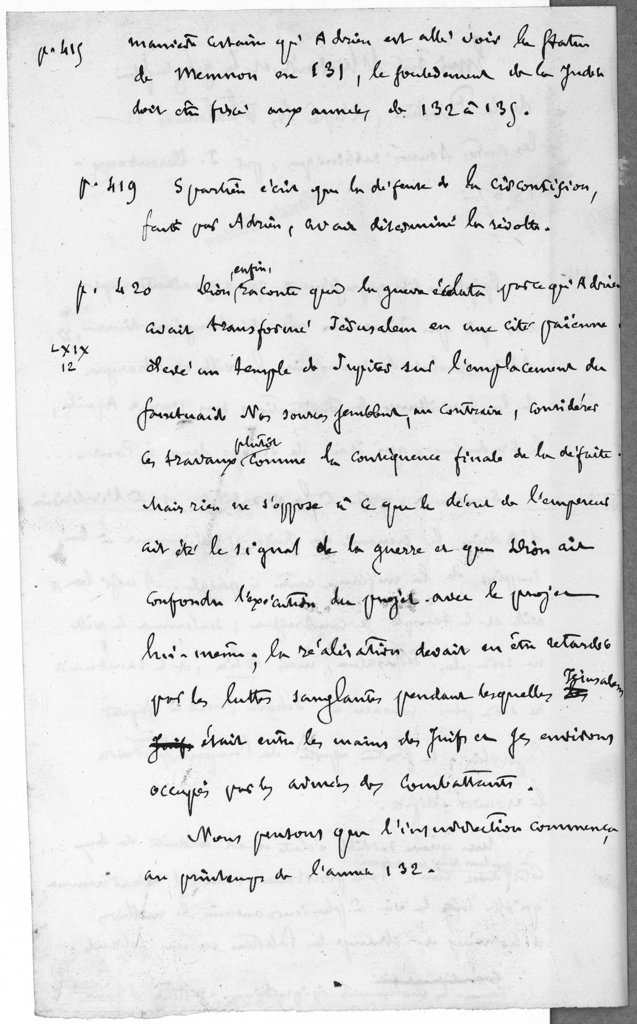 p. 415 manière certaine qu'Adrien est allé voir la statue
de Memnon en 131, le soulèvement de la Judée
doit être fixé aux années de 132 à 135.
p. 419 Spartien écrit que la défense de la circoncision,
faite par Adrien, avait déterminé la révolte.
p. 420 Dion enfin, raconte que la guerre éclata parce qu'Adrien
avait transformé Jérusalem en une cité païenne
LXIX élevé un temple de Jupiter sur l'emplacement du
12
sanctuaire Nos sources semblent, au contraire, considérer
ces travaux plutôt comme la conséquence finale de la défaite.
Mais rien ne s'oppose à ce que le décret de l'empereur
ait été le signal de la guerre et que Dion ait
confondu l'exécution du projet avec le projet
lui-même; la réalisation devait en être retardée
par les luttes sanglantes pendant lesquelles Jérusalem
était entre les mains des Juifs et ses environs
occupés par les armées des combattants.
Nous pensons que l'insurrection commença
au printemps de l'année 132.